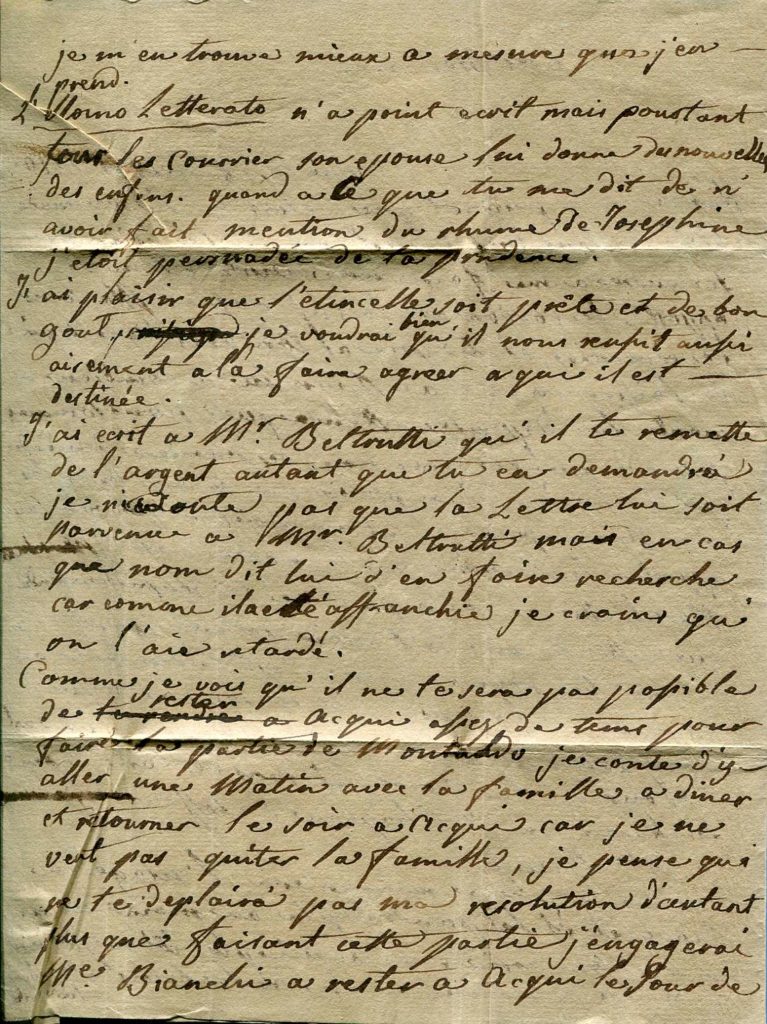 je m'en trouve mieux a mesure que j'en
prend.
L'Uomo Letterato n'a point ecrit mais pourtant
tous les Courrier son epouse lui donne des nouvelles
des enfens. quand a ce que tu me dit de n'
avoir fait mention du rhume de Josephine
j'etoit persuadée de ta prudence.
J'ai plaisir que l'etincelle soit prête et de bon
gout je voudrai bien qu'il nous reussit aussi
aisement a la faire agreer a qui il est
destinée.
J'ai ecrit a Mr. Beltrutti qu'il te remette
de l'argent autant que tu en demandrá
je ne doute pas que la Lettre lui soit
parvenue a Mr. Beltrutti mais en cas
que nom dit lui d'en faire recherche
car comme il a eté affranchie je crains qu'
on l'aie retardé.
Comme je vois qu'il ne te sera pas possible
de te rendre rester a Acqui assez de tems pour
faire la partie de je conte d'y
aller une Matin avec la famille a diner
et retourner le soir a Acqui car je ne
veut pas quiter la famille, je pense qui
ne te deplairá pas ma resolution d'autant
plus que faisant cette partie j'engagerai
Me. Bianchi a rester a Acqui le Jour de